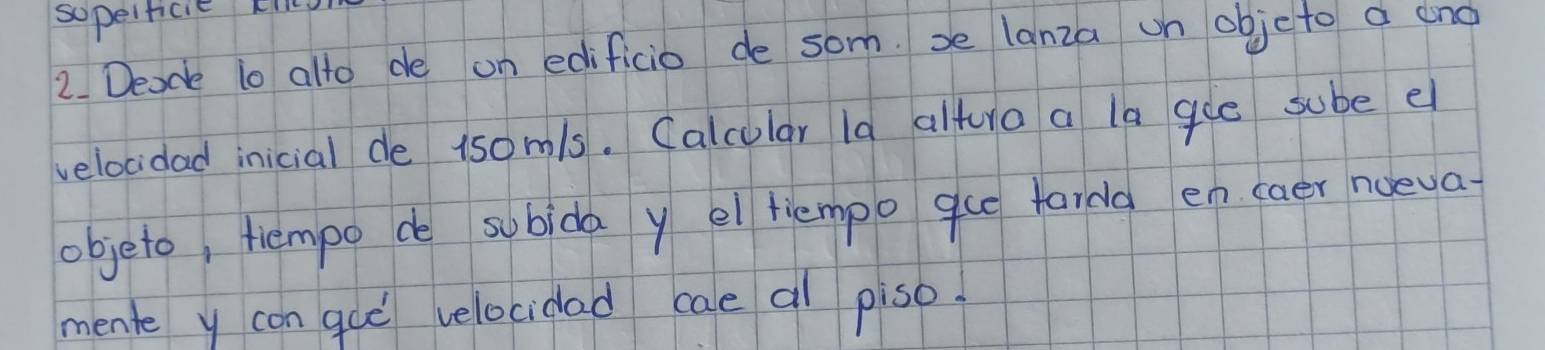 superficie
2_ Desde lo alto de un edificio de 50m. se lanza un objeto a una
velocidad inicial de 150m/s. Calcular la altura a la que sube el
objeto, tiempo de subida y el tiempo que tarda en caer nueva-
mente y con qué velocidad cae al piso.